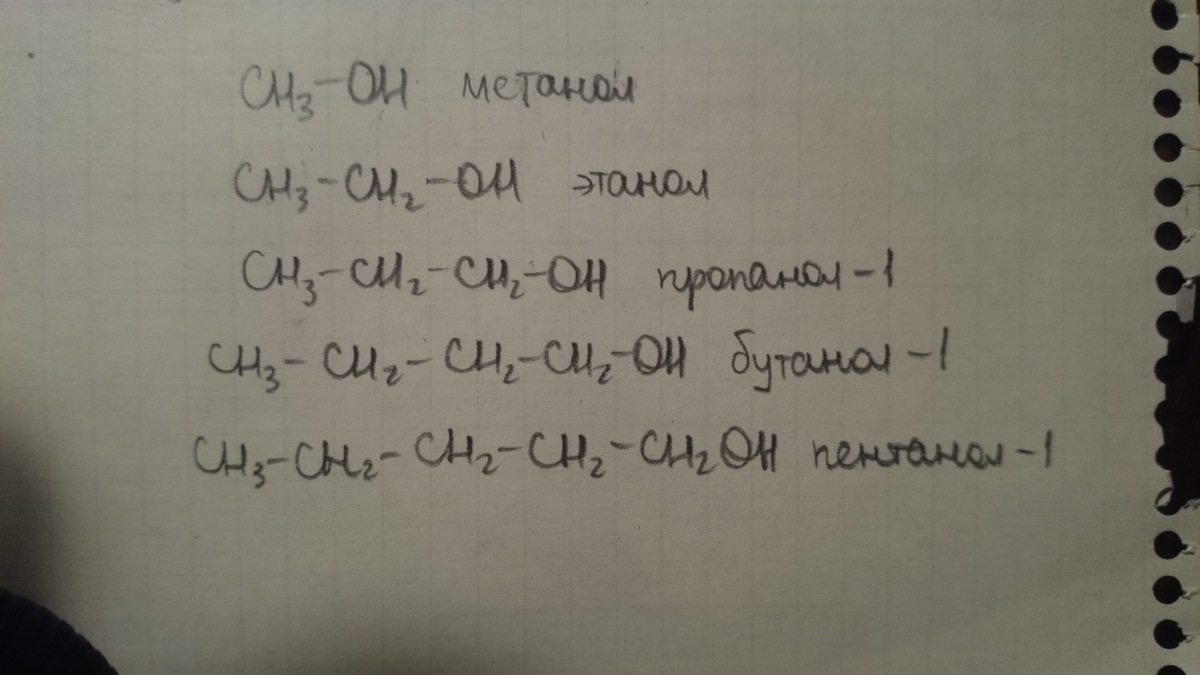 CH₃-OH метанол
CH₃-CH₂-OH этанол
CH₃-CH₂-CH₂-OH пропанол-1
CH₃-CH₂-CH₂-CH₂-OH бутанол-1
CH₃-CH₂-CH₂-CH₂-CH₂OH пентанол-1